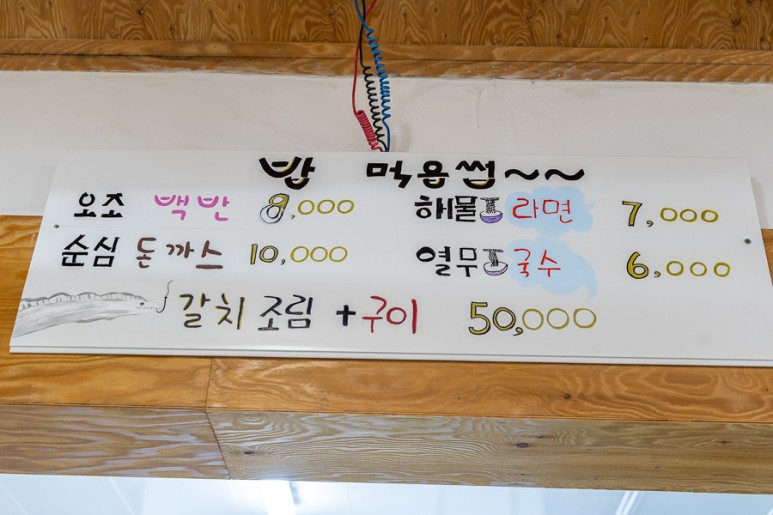 밥 먹용썹~~
오조 백반 8,000 해물라면 7,000
순심 돈까스 10,000 열무국수 6,000
갈치조림+구이 50,000